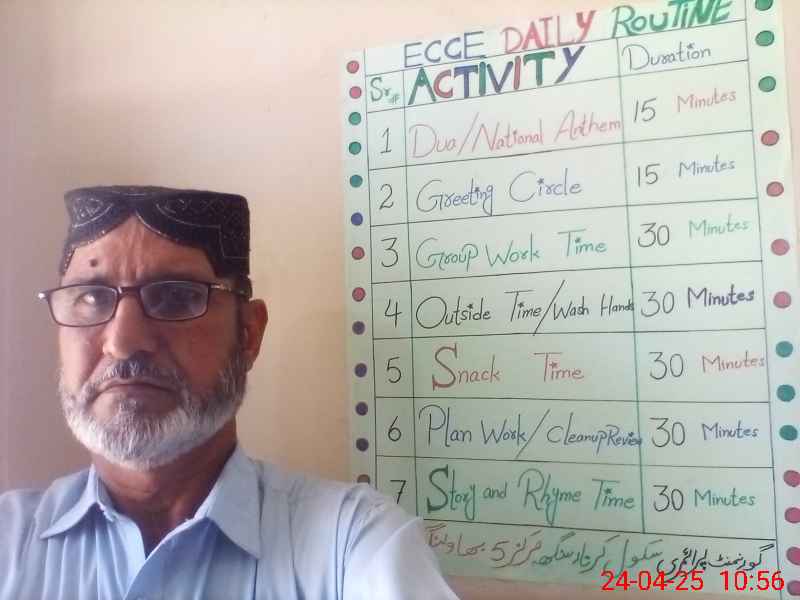 ECCE DAILY ROUTINE
Sr# ACTIVITY Duration
1 Dua/National Anthem 15 Minutes
2 Greeting Circle 15 Minutes
3 Group Work Time 30 Minutes
4 Outside Time/Wash Hands 30 Minutes
5 Snack Time 30 Minutes
6 Plan Work/CleanupReview 30 Minutes
7 Story and Rhyme Time 30 Minutes
گورنمنٹ پرائمری سکول کرتار سنگھ مرکز 5 بہاولنگر
24-04-25 10:56